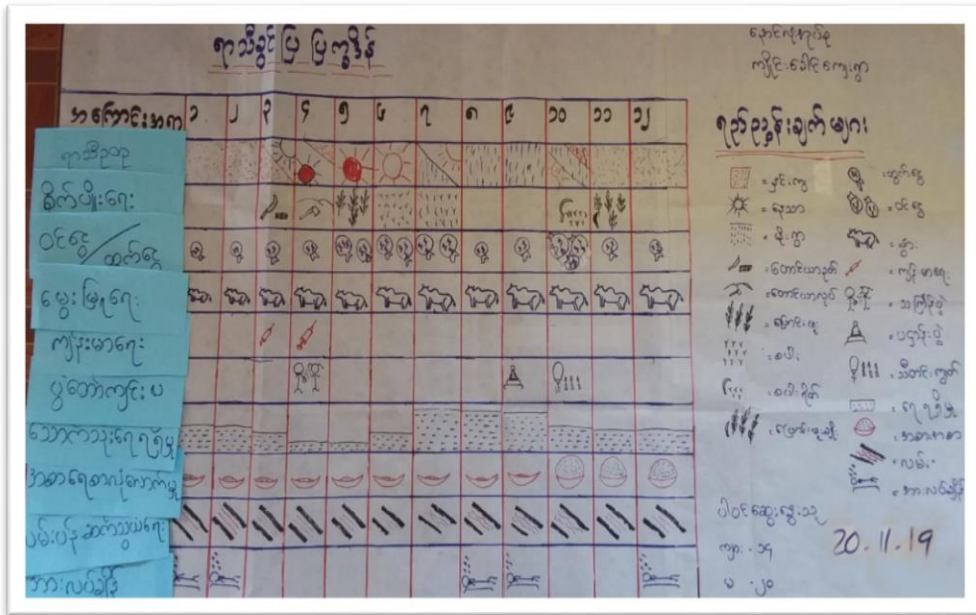 ရာသီခွင်ပြ ပြက္ခဒိန်
အကြောင်းအရာ ၁ ၂ ၃ ၄ ၅ ၆ ၇ ၈ ၉ ၁၀ ၁၁ ၁၂
ရာသီဥတု
စိုက်ပျိုးရေး
ဝင်ငွေ/ထွက်ငွေ
မွေးမြူရေး
ကျန်းမာရေး
ပွဲတော်ကျင်းပ
သောက်သုံးရေရရှိမှု
အစားရေစာလုံလောက်မှု
လမ်းပန်းဆက်သွယ်ရေး
အားလပ်ချိန်
ရည်ညွှန်းချက်များ
= နှင်းကျ
= နေသာ
= မိုးရွာ
= တောင်ယာခုတ်
= တောင်ယာလုပ်
= ပြောင်းဖူး
= စပါး
= စပါးရိတ်
= ပြောင်းဖူးချိုး
= ထွက်ငွေ
= ဝင်ငွေ
= နွား
= ကျန်းမာရေး
= သင်္ကြန်ပွဲ
= ပဌာန်းပွဲ
= သီတင်းကျွတ်
= ရေရရှိမှု
= အစားအစာ
= လမ်း
= အားလပ်ချိန်
ပါဝင်ဆွေးနွေးသူ
ကျား - ၁၄
မ - ၂၀
20.11.19